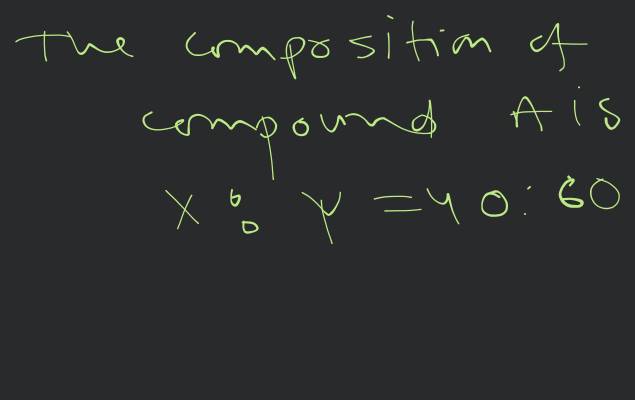 The composition of
compound A is
X : Y = 40 : 60